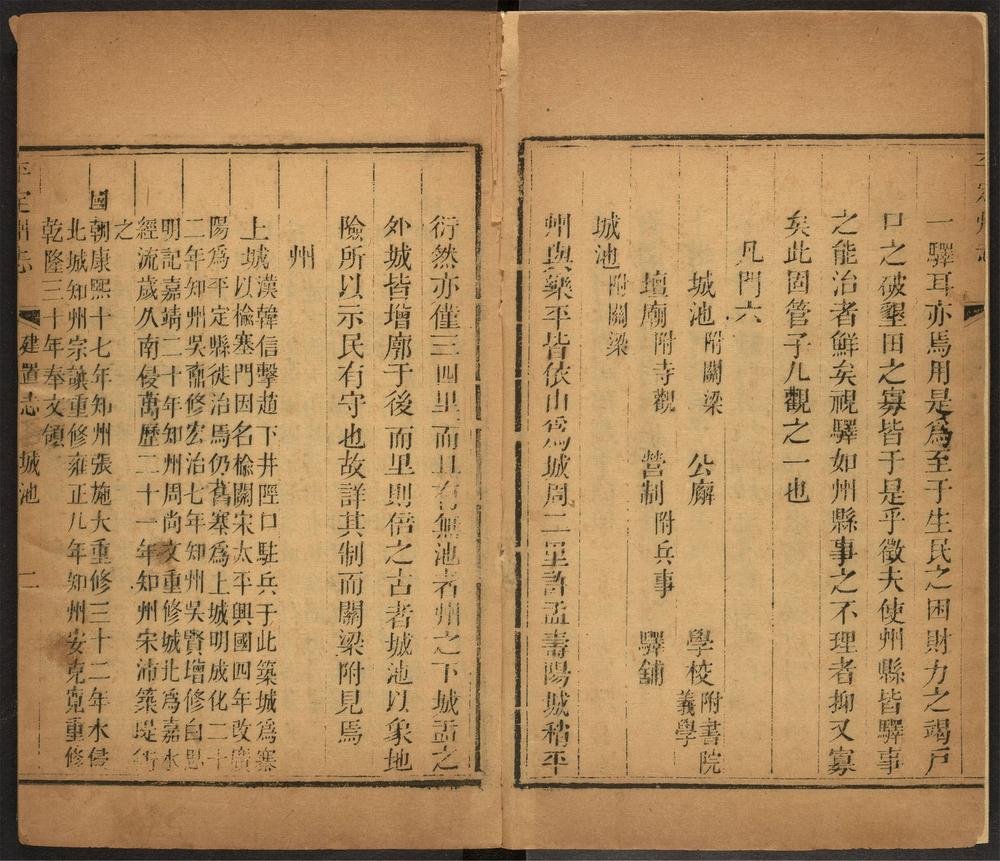 一驛耳亦焉用是為至于生民之困財力之竭戸
口之破墾田之寡皆于是乎徵夫使州縣皆驛事
之能治者鮮矣視驛如州縣事之不理者抑又寡
矣此固管子八觀之一也
凡門六
城池附關梁　公廨　學校附書院義學
壇廟附寺觀　營制附兵事　驛鋪
城池附關梁
州與樂平皆依山為城周二里許盂壽陽城稍平
衍然亦僅三四里而且有無池者州之下城盂之
外城皆增廓于後而里則倍之古者城池以象地
險所以示民有守也故詳其制而關梁附見焉
州
上城漢韓信擊趙下井陘口駐兵于此築城為寨
以榆塞門因名榆關宋太平興國四年改廣
陽為平定縣徙治焉仍舊寨為上城明成化二十
二年知州吳黼修宏治七年知州吳賢增修自思
明記嘉靖二十年知州周尚文重修城北為嘉水
經流歲久南侵萬歷二十一年知州宋沛築堤
之
國朝康熙十七年知州張施大重修三十二年水侵
北城知州宗讓重修雍正八年知州安克寬重修
乾隆三十年奉文領
平定州志　建置志　城池　二